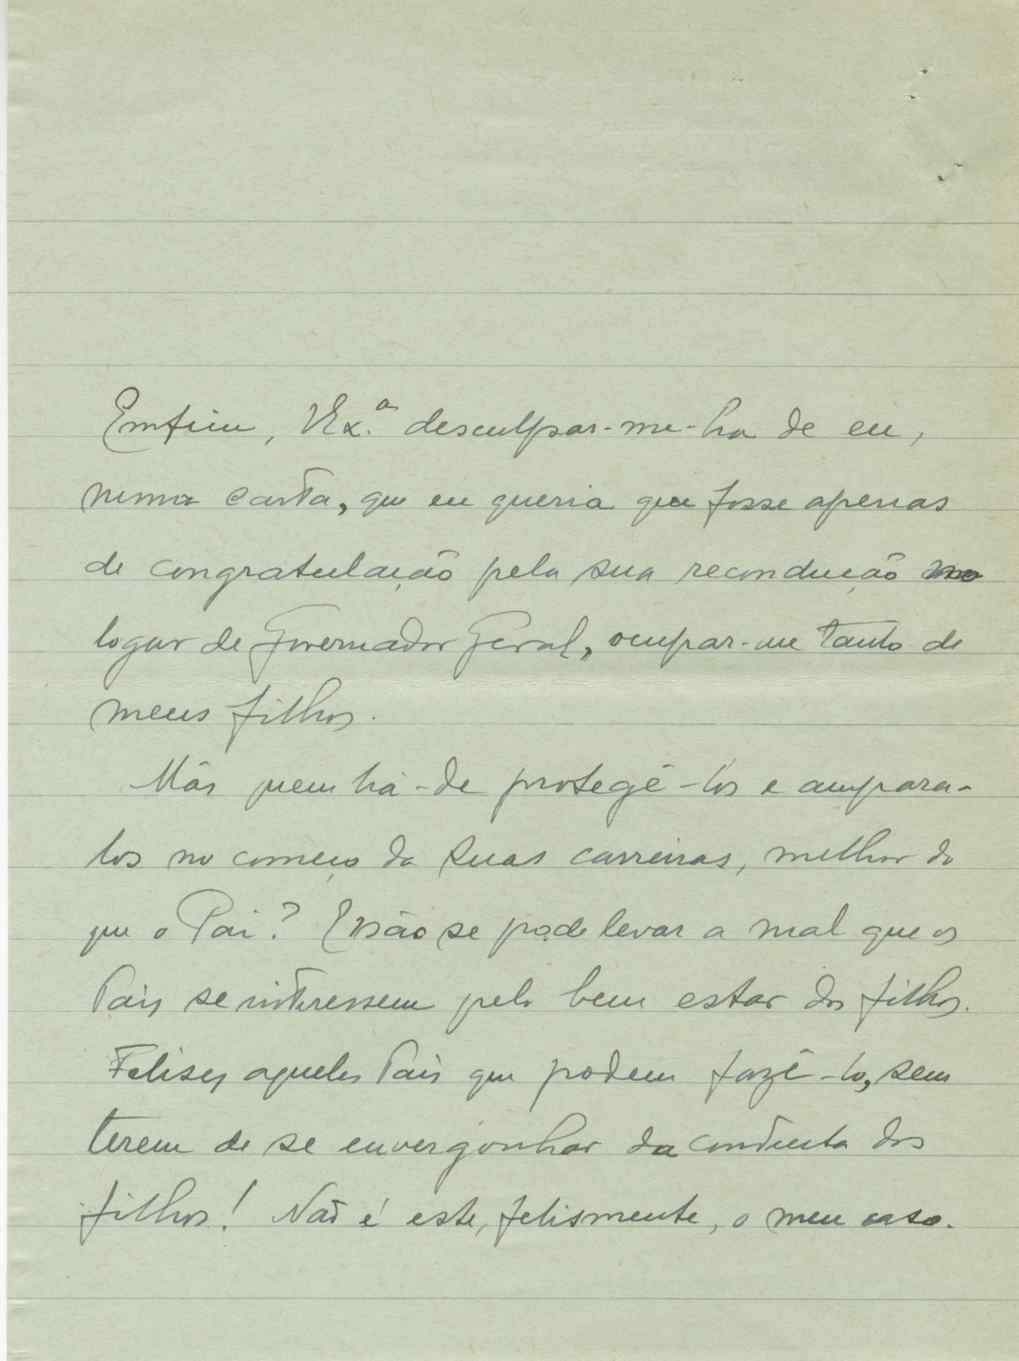 Emfim, VEx.ª desculpar-me-ha de eu,
numa carta, que eu queria que fosse apenas
de congratulação pela sua recondução no
logar de Governador Geral, ocupar-me tanto de
meus filhos.
Más quem há-de protegê-los e ampara-
los no começo da suas carreiras, melhor do
que o Pai? E não se pode levar a mal que os
Pais se interessem pelo bem estar dos filhos.
Felises aqueles Pais que podem fazê-lo, sem
terem de se envergonhar da conducta dos
filhos! Não é este, felismente, o meu caso.